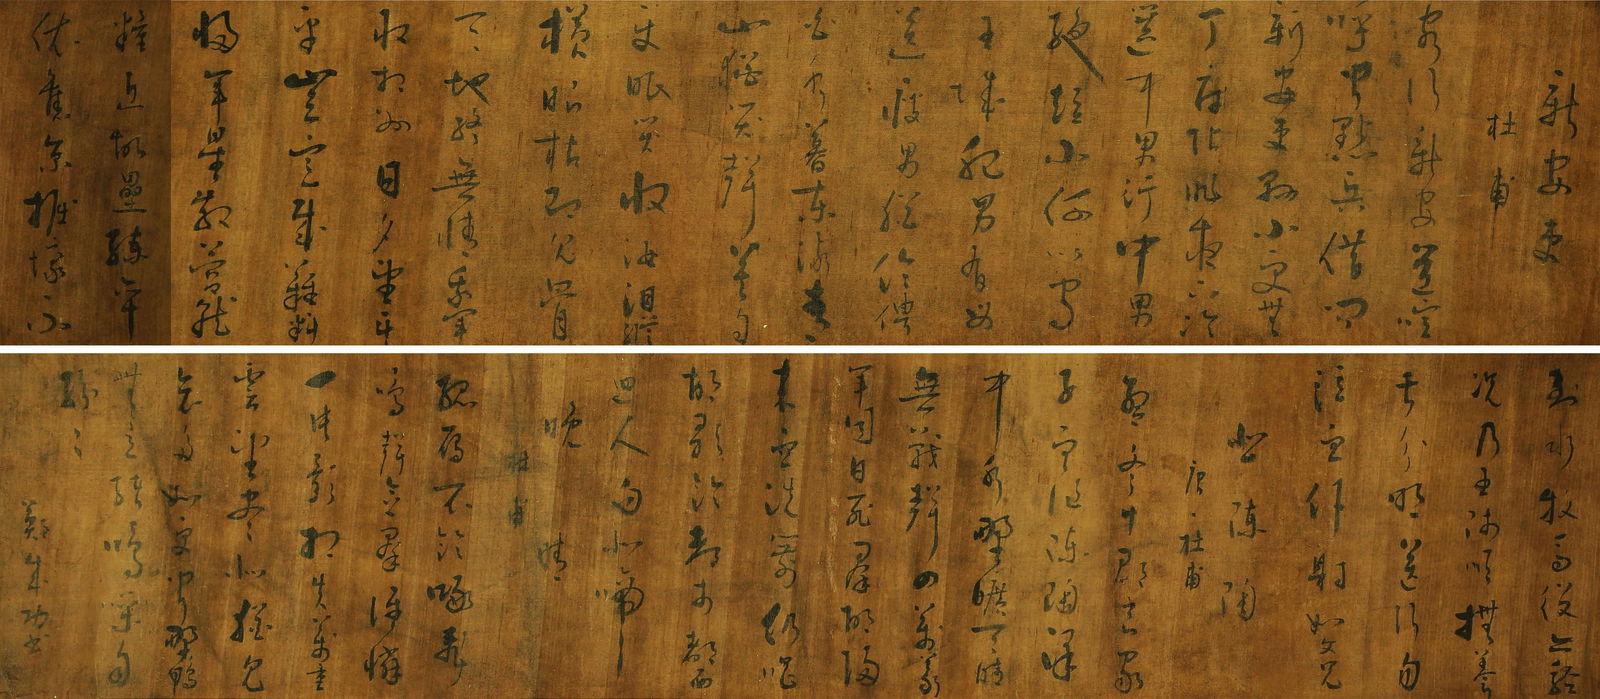 新安吏
杜甫
客行新安道喧
呼聞點兵借問
新安吏縣小更無
丁府帖昨夜下次
選中男行中男
絕短小何以守
王城肥男有母
送瘦男獨伶俜
白水暮東流青
山猶哭聲莫自
使眼枯收汝淚縱
橫眼枯即見骨
天地終無情我軍
收相州日夕望其
平豈意賊難料
歸軍星散營就
糧近故壘練卒
依舊京掘壕不
到水牧馬役亦輕
況乃王師順撫養
甚分明送行勿
泣血僕射如父兄
悲陳陶
唐杜甫
孟冬十郡良家
子血作陳陶澤
中水野曠天清
無戰聲四萬義
軍同日死羣胡歸
來血洗箭仍唱
胡歌飲都市都
人向北啼
晚晴
杜甫
孤雁不飲啄飛
鳴聲念羣誰憐
一片影相失萬重
雲望盡似猶見
哀多如更聞野鴨
無意緒鳴噪自
紛紛
鄭成功書